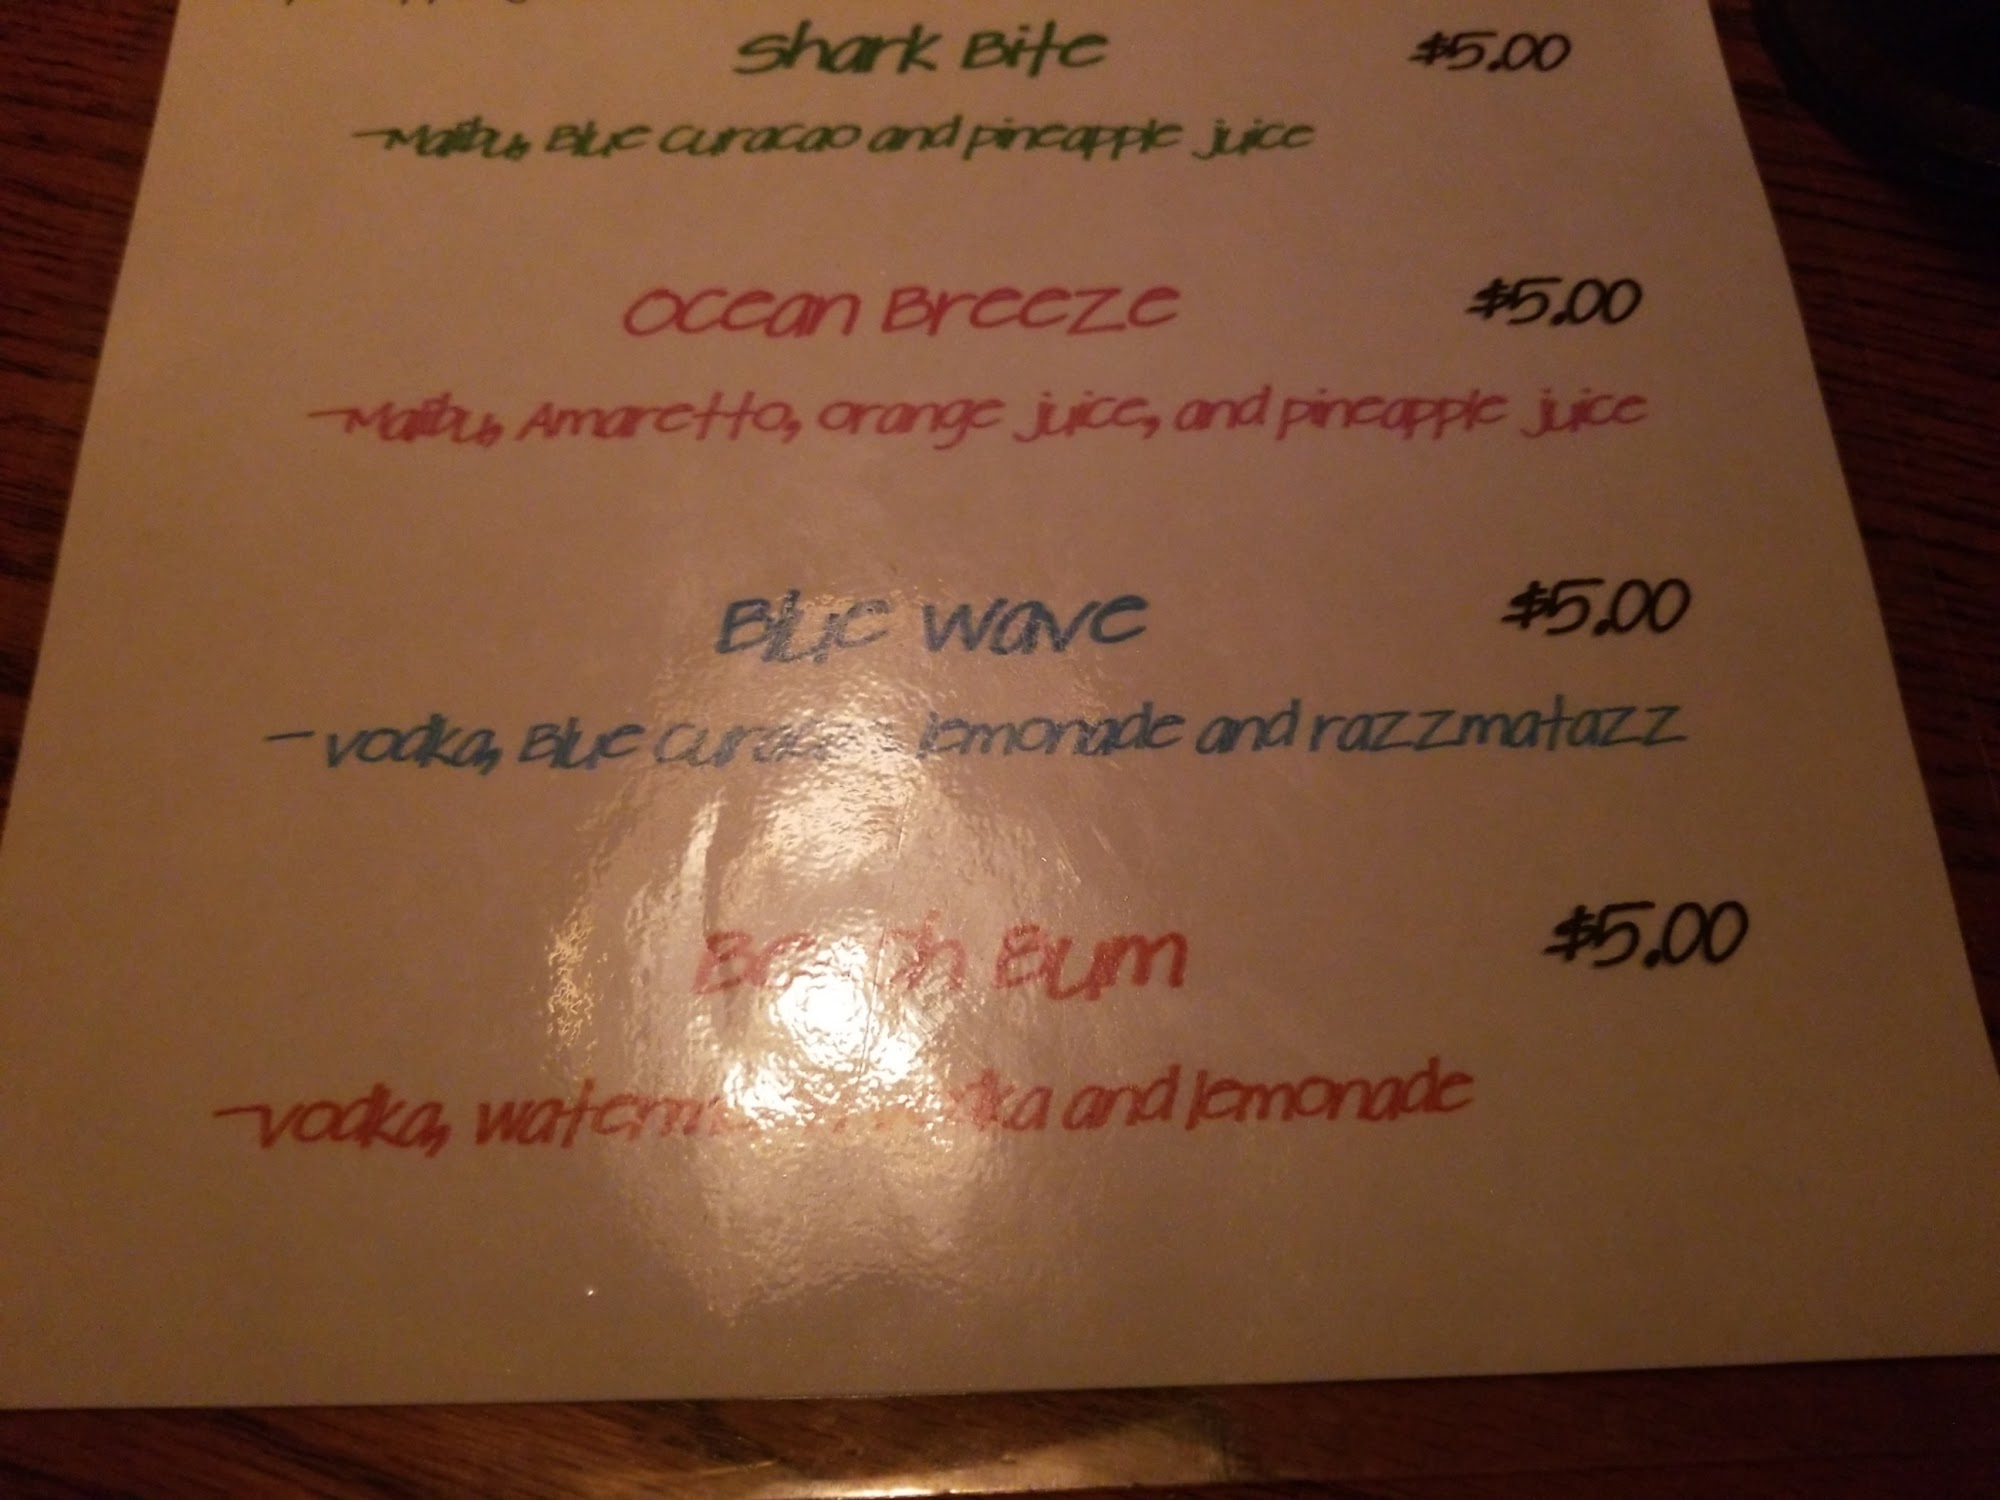 Shark Bite $5.00
-Malibu, Blue Curacao and pineapple juice
Ocean Breeze $5.00
-Malibu, Amaretto, orange juice, and pineapple juice
Blue Wave $5.00
- vodka, Blue Curacao lemonade and razzmatazz
Beach Bum $5.00
-vodka, watermelon vodka and lemonade